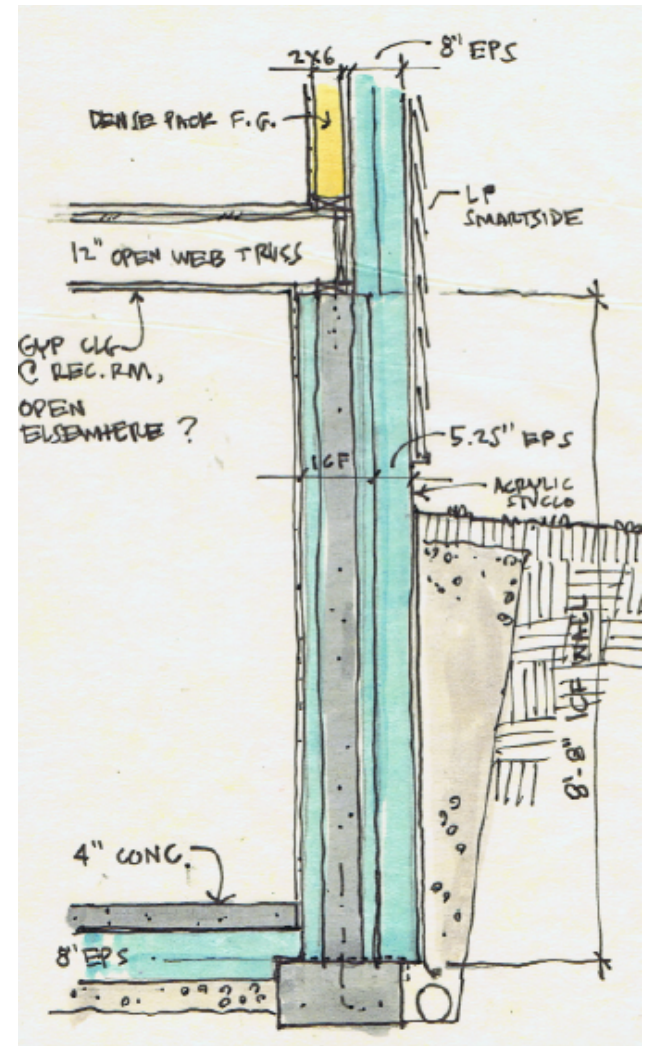 2x6
8" EPS
DENSE PACK F.G.
LP
SMARTSIDE
12" OPEN WEB TRUSS
GYP CLG
@ REC. RM,
OPEN
ELSEWHERE ?
5.25" EPS
ICF
ACRYLIC
STUCCO
8'-8" ICF WALL
4" CONC.
8" EPS